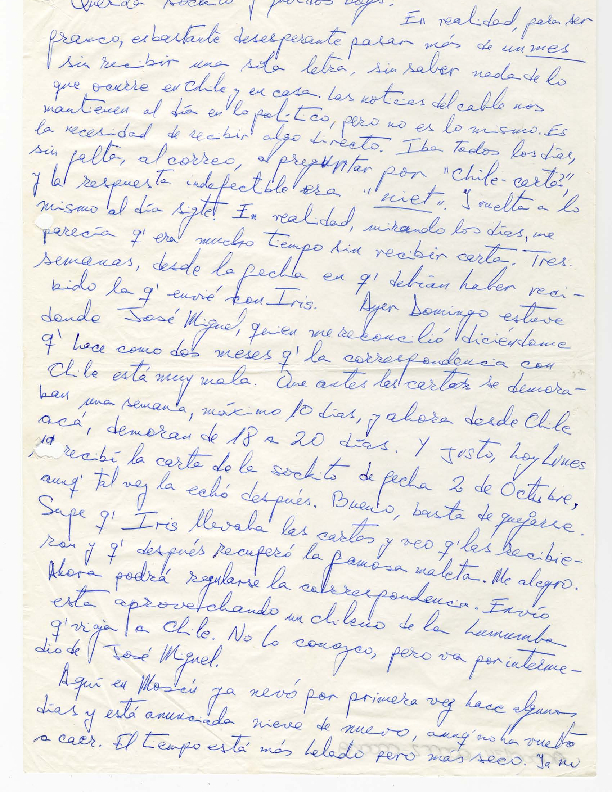 Querida Sochito y
En realidad, para ser
franco, es bastante desesperante pasar más de un mes
sin recibir una sola letra, sin saber nada de lo
que ocurre en Chile y en casa. Las noticias del cable nos
mantienen al día en lo político, pero no es lo mismo. Es
la necesidad de recibir algo directo. Iba todos los días,
sin falta, al correo, a preguntar por "Chile-cartas",
y la respuesta indefectible era "niet". Y vuelta a lo
mismo al día sigte. En realidad, mirando los días, me
parecía q' era mucho tiempo sin recibir carta. Tres
semanas, desde la fecha en q' debían haber reci-
bido la q' envié con Iris. Ayer Domingo estuve
donde José Miguel, quien me reconcilió diciéndome
q' hace como dos meses q' la correspondencia con
Chile está muy mala. Que antes las cartas se demora-
ban una semana, máximo 10 días, y ahora desde Chile
acá, demoran de 18 a 20 días. Y justo, hoy Lunes
recibí la carta de la Sochito de fecha 2 de Octubre,
aunq' tal vez la echó después. Bueno, basta de quejarse.
Supe q' Iris llevaba las cartas y veo q' las recibie-
ron y q' después recuperó la famosa maleta. Me alegro.
Ahora podrá regularse la correspondencia. Envío
esta aprovechando un chileno de la Lumumba
q' viaja a Chile. No lo conozco, pero va por interme-
dio de José Miguel.
Aquí en Moscú ya nevó por primera vez hace algunos
días y está anunciada nieve de nuevo, aunq' no ha vuelto
a caer. El tiempo está más helado pero más seco. Ya no